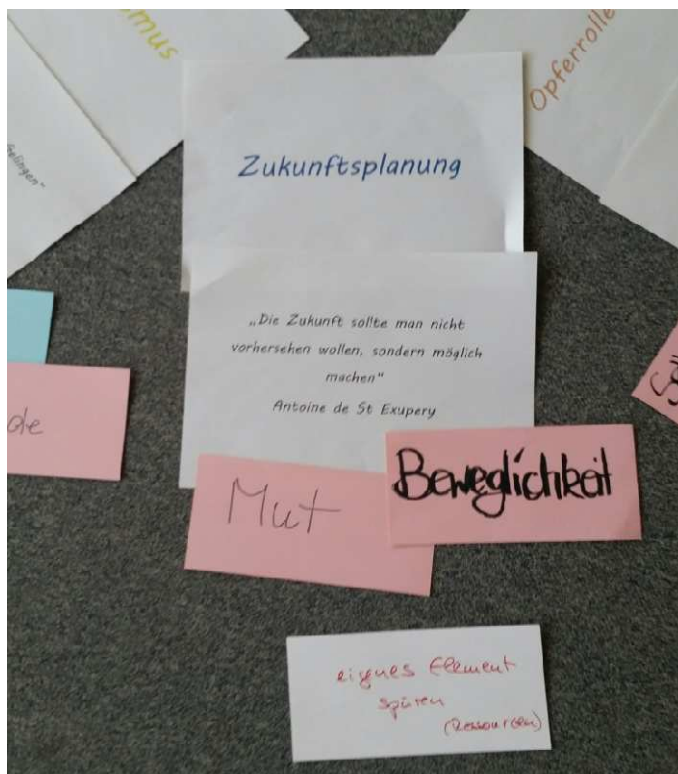 mus
Opferrolle
Gelingen"
Zukunftsplanung
„Die Zukunft sollte man nicht
vorhersehen wollen, sondern möglich
machen"
Antoine de St Exupery
de
Mut
Beweglichkeit
eignes Element
spüren
(Ressourcen)